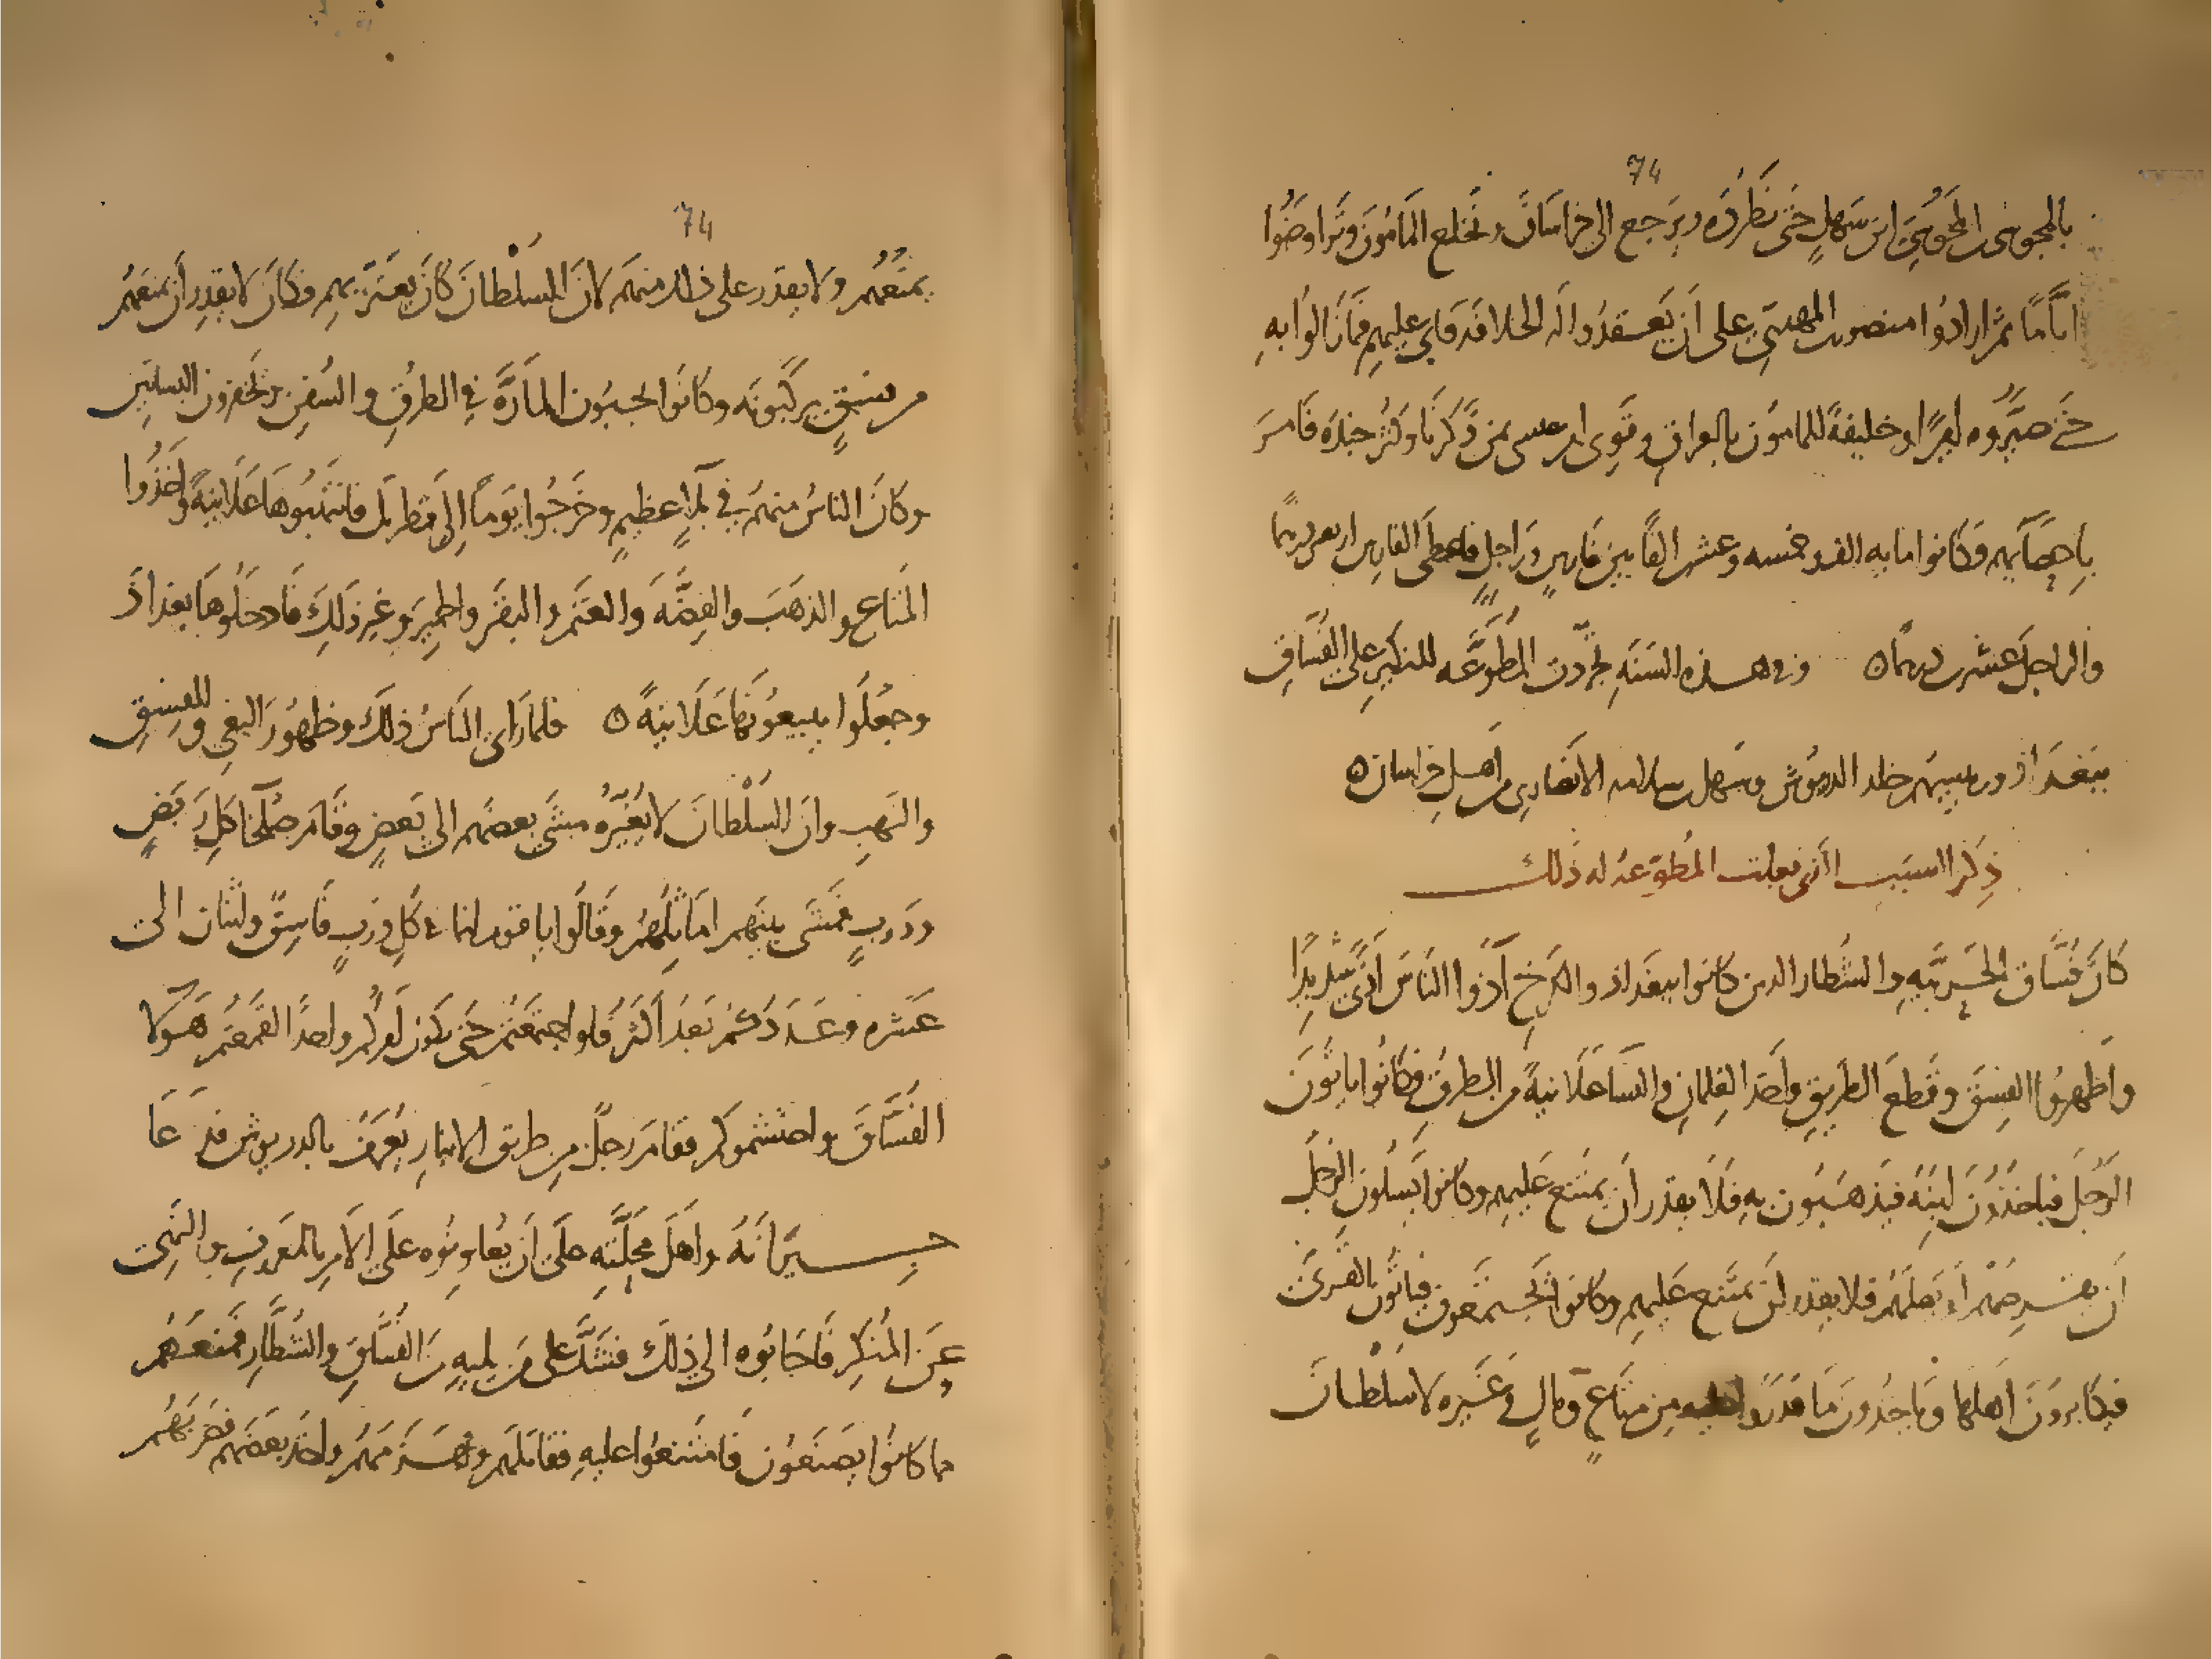 74
بالمجوسى المجوسى ابن سهل حتى نطرده ويرجع الى خراسان ونخلع المامون وتراوضوا
اياما ثم ارادوا منصور المهدى على ان يعقدوا له الخلافة فابى عليهم فمازالوا به
حتى صيروه اميرا وخليفة للمامون بالعراق وقوى امر عيسى بمن ذكرنا وكثر جنده فامر
باحصآيهم فكانوا مايه الف وخمسه وعشرين الفا بين فارس وراجل فاعطى الفارس اربعين درهما
والراجل عشرين درهما ه وفى هذه السنة تجردت المطوعه للنكير على الفساق
ببغداذ ورييسهم خلد الدريوش وسهل بن سلامه الانصارى من اهل خراسان ه
ذكر السبب الذى فعلت المطوعة له ذلك
كان فساق الحربيه والشطار الذين كانوا ببغداذ والكرخ آذوا الناس اذى شديدا
واظهروا الفسق وقطع الطريق واخذ الغلمان والنسا علانية من الطرق فكانوا ياتون
الرجل فياخذون ابنه فيذهبون به فلا يقدر ان يمتنع عليهم وكانوا يسلون الرجل
ان يقرضهم او يصلهم فلا يقدر ان يمتنع عليهم وكانوا يجتمعون فياتون القرى
فيكابرون اهلها وياخذون ما قدروا عليه من متاع ومال وغيره لا سلطان
74
يمنعهم ولا يقدر على ذلك منهم لان السلطان كان يعتز بهم فكان لا يقدر ان يمنعهم
من فسق يركبونه وكانوا يجبون المارة فى الطرق والسفن ويخفرون البساتين
وكان الناس منهم فى بلآ عظيم وخرجوا يوما الى قطربل فانتهبوها علانية واخذوا
المتاع والذهب والفضة والغنم والبقر والحمير وغير ذلك فادخلوها بغداذ
وجعلوا يبيعونها علانية ه فلما راى الناس ذلك وظهور البغى والفسق
والنهب وان السلطان لا يغيره مشى بعضهم الى بعض وقام صلحآ كل ربض
ودرب فمشى بينهم اماثلهم وقالوا يا قوم انما فى كل درب فاسق واثنان الى
عشره وعددكم بعد اكثر فلو اجتمعتم حتى يكون امركم واحدا لقمعتم هولآ
الفساق واحتشموكم فقام رجل من طريق الانبار يعرف بالدريوش فدعا
جيرانه واهل محلته على ان يعاونوه على الامر بالمعروف والنهى
عن المنكر فاجابوه الى ذلك فشد على من يليه من الفساق والشطار فمنعهم
مما كانوا يصنعون فامتنعوا عليه فقاتلهم وهزمهم واخذ بعضهم فضربهم